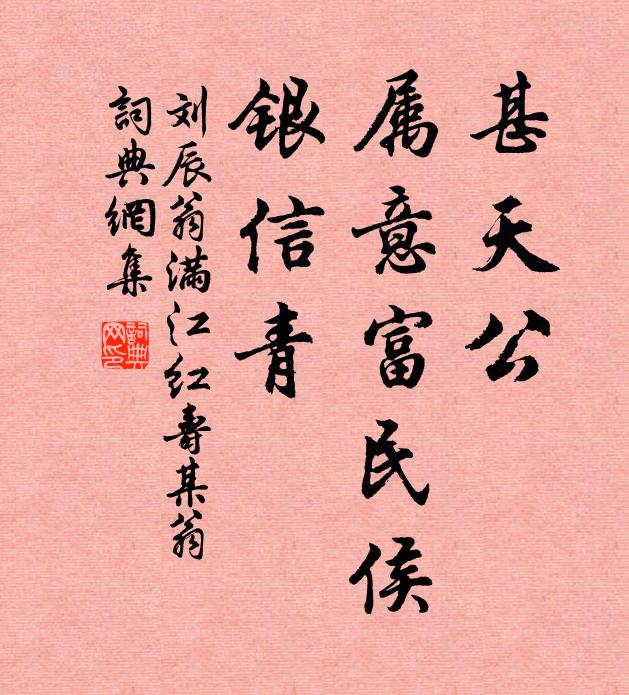 甚天公
属意富民侯
银信青
刘辰翁满江红寿某翁
詞典網集
詞典網印